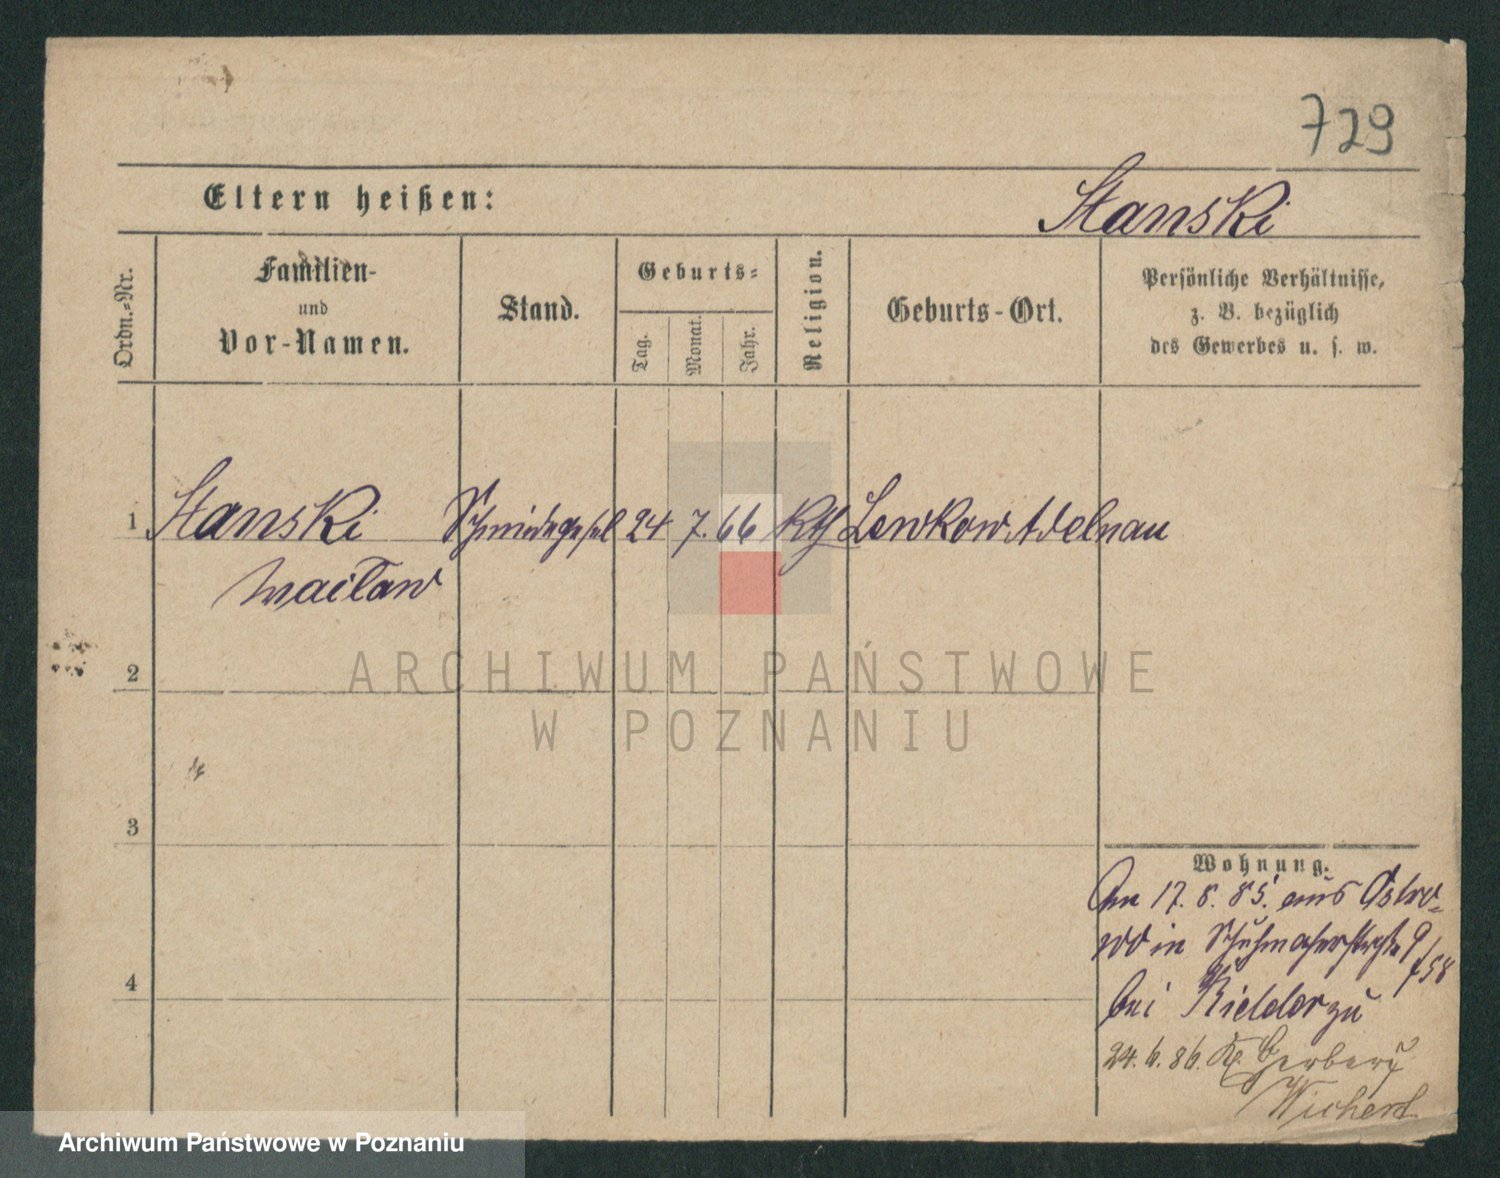 729
Eltern heißen:
Stanski
Ordn.-Nr.
Familien-
und
Vor-Namen.
Stand.
Geburts-
Tag.
Monat.
Jahr.
Religion.
Geburts-Ort.
Persönliche Verhältnisse,
z. B. bezüglich
des Gewerbes u. s. w.
1 Stanski Schmiedegesel 24 7. 66 Kth Lewkow Adelnau
Waclaw
2
3
4
Wohnung.
Am 17. 8. 85. aus Ostro-
wo in Schuhmacherstraße 9/58
bei zu
24. 6. 86. Kl. Gerberst
Wichert
ARCHIWUM PAŃSTWOWE
W POZNANIU
Archiwum Państwowe w Poznaniu